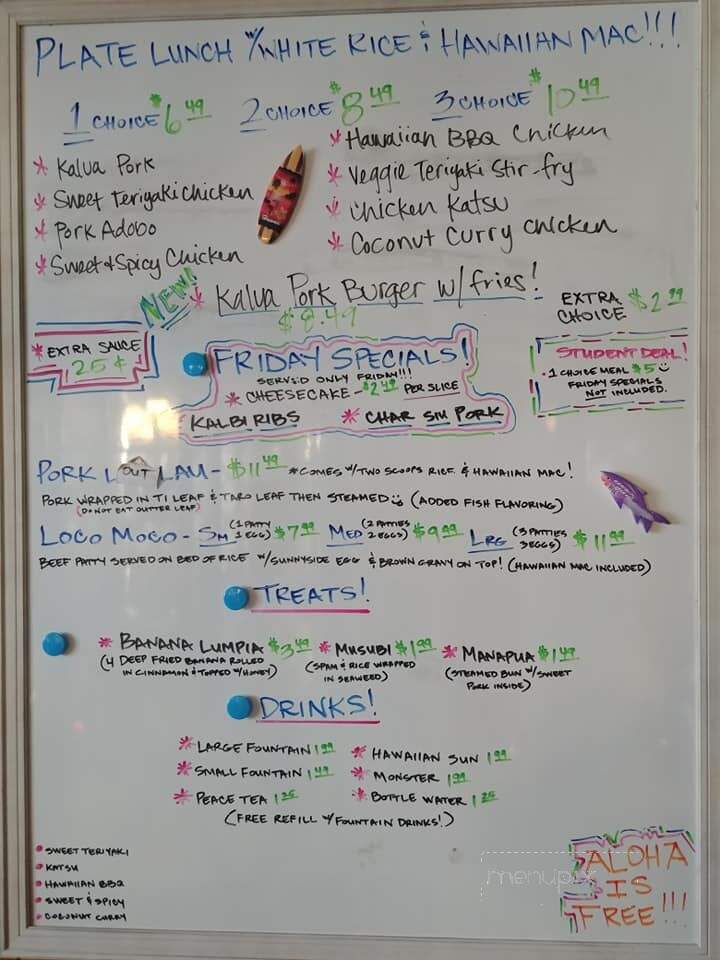 PLATE LUNCH W/WHITE RICE & HAWAIIAN MAC!!!
1 CHOICE $6.49 2 CHOICE $8.49 3 CHOICE $10.49
* Kalua Pork
* Sweet Teriyaki Chicken
* Pork Adobo
* Sweet & Spicy Chicken
* Hawaiian BBQ Chicken
* Veggie Teriyaki Stir-fry
* Chicken Katsu
* Coconut Curry Chicken
NEW! * Kalua Pork Burger w/fries!
$8.49
EXTRA CHOICE $2.99
* EXTRA SAUCE
25¢
FRIDAY SPECIALS!
SERVED ONLY FRIDAY!!!
* CHEESECAKE - $2.49 PER SLICE
KALBI RIBS * CHAR SIU PORK
STUDENT DEAL!
· 1 CHOICE MEAL $5
FRIDAY SPECIALS
NOT INCLUDED.
PORK L OUT LAU - $11.49 * COMES W/TWO SCOOPS RICE & HAWAIIAN MAC!
PORK WRAPPED IN TI LEAF & TARO LEAF THEN STEAMED (ADDED FISH FLAVORING)
(DO NOT EAT OUTTER LEAF)
LOCO MOCO - SM (1 PATTY 1 EGG) $7.99 MED (2 PATTIES 2 EGGS) $9.99 LRG (3 PATTIES 3 EGGS) $11.99
BEEF PATTY SERVED ON BED OF RICE W/SUNNYSIDE EGG & BROWN GRAVY ON TOP! (HAWAIIAN MAC INCLUDED)
TREATS!
* BANANA LUMPIA $3.49 * MUSUBI $1.99 * MANAPUA $1.49
(4 DEEP FRIED BANANA ROLLED
IN CINNAMON & TOPPED W/HONEY)
(SPAM & RICE WRAPPED
IN SEAWEED)
(STEAMED BUN W/SWEET
PORK INSIDE)
DRINKS!
* LARGE FOUNTAIN 1.99 * HAWAIIAN SUN 1.99
* SMALL FOUNTAIN 1.49 * MONSTER 1.99
* PEACE TEA 1.25 * BOTTLE WATER 1.25
(FREE REFILL W/FOUNTAIN DRINKS!)
• SWEET TERIYAKI
• KATSU
• HAWAIIAN BBQ
• SWEET & SPICY
• COCONUT CURRY
menupix
ALOHA
IS
FREE!!!